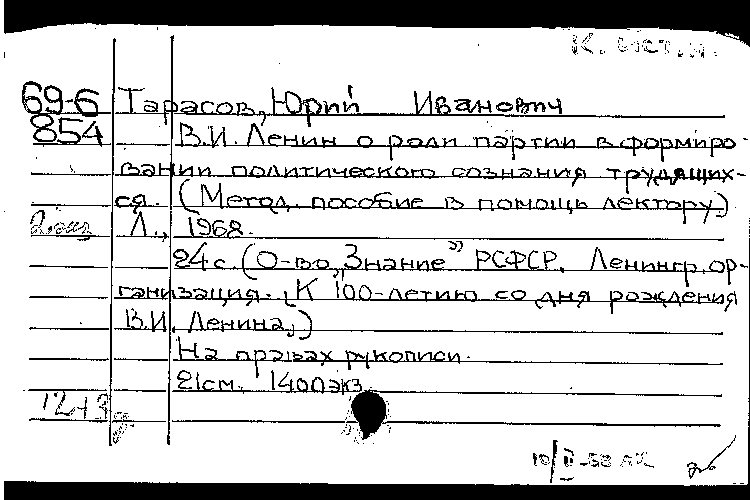 К. ист. п.
69-6 Тарасов, Юрий Иванович
854 В.И. Ленин о роли партии в формиро-
вании политического сознания трудящих-
ся. (Метод. пособие в помощь лектору)
2 экз Л., 1968.
24 с. (О-во „Знание” РСФСР. Ленингр. ор-
ганизация. К 100-летию со дня рождения
В.И. Ленина.)
На правах рукописи.
21см. 1400экз.
10/II-53